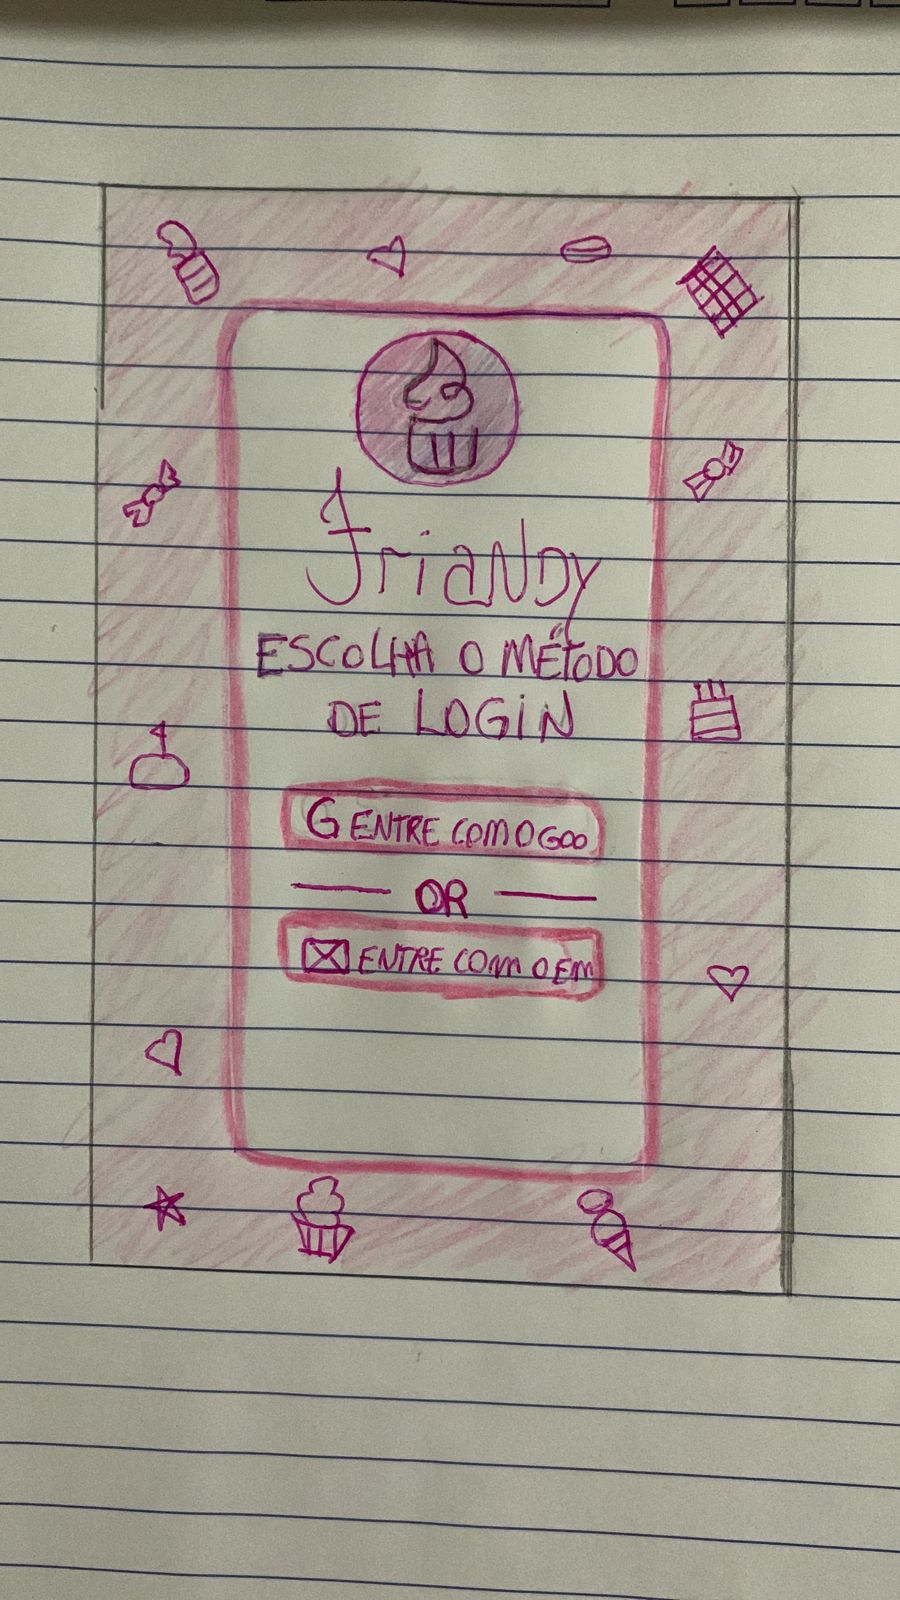 FriaNDy
ESCOLHA O MÉTODO
DE LOGIN
G ENTRE COM O GOO
OR
ENTRE COM O EM